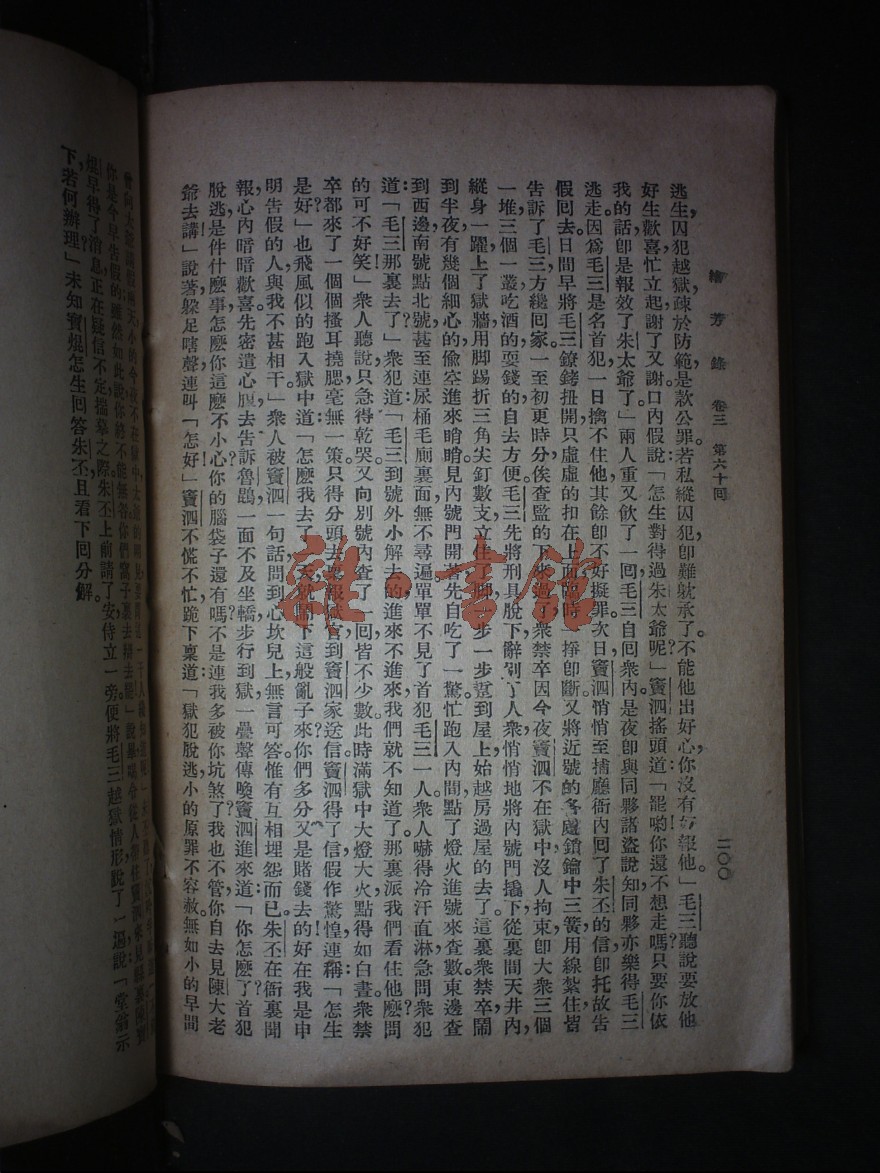 繪芳錄　卷三　第六十回　二〇〇
逃生，囚犯越獄，疎於防範，是款公罪；若私縱囚犯，卽難躭承了。不能他出好心，你沒有好報他。」毛三聽說要放他
好生歡喜，忙立起謝了又謝，口內假說：「怎生對得過朱太爺呢？」竇泗搖頭道：「罷喲！你還不想走嗎？只要你依
我的話，卽是報效了朱太爺了。」兩人重又飲了一囘。毛三自囘衆內，是夜卽與同夥諸盜說知，同夥亦樂得毛三
逃走，因爲毛三是名首犯，一日擒不住他，其餘卽不好擬罪。次日竇泗悄悄至捕廳衙內囘了朱丕的信，卽托故告
假囘去。日間早將毛三鐐銬扭開，只虛虛的扣在上面，臨時一掙卽斷。又將近號的各處鎖鑰中三簧，用線紮住，皆
告訴了毛三，方纔囘家。一至初更時分，俟查監的下來過了，衆禁卒因今夜竇泗不在獄中，沒人拘束，卽大衆三個
一堆，三個一叢，吃酒的耍錢的，自去方便。毛三先將刑具脫下，辭別了人衆，悄悄地將內號門撬下，從裏間天井內，
縱身一躍，上了獄牆，用脚踢折三角尖釘數支，立住了脚，一步一步蹔到屋上，始越房過屋的去了。這裏衆禁卒鬧
到半夜，有幾個細心的偷空進來睄睄，見內號門開著，先自吃了一驚，忙跑入內間，點了燈火，進號來查數，東邊查
到西邊，南號點北號，甚至連尿桶毛廁裏面，無不尋遍，單單不見了首犯毛三一人。衆人嚇得冷汗直淋，急問衆犯
道：「毛三那裏去了？」衆犯道：「毛三到號外小解去的，進來不進來，我們就不知道了。那裏派我們看住他麽？問
的可不好笑！」衆人聽說，只急得乾哭，又向別號內查了一囘，皆不少數。此時滿獄中大燈大火，點得如白晝。衆禁
卒都來了，一個個搔耳撓腮，毫無一策，只得分頭去稟報獄官，到竇泗家送信。竇泗得了信，假作驚惶，連稱：「怎生
是好？」也飛風似的跑入獄中道：「怎麽我去了一天，就鬧下這般亂子來？你們多分又是賭錢去的，好在我是申
明告假的人，與我不甚相干。」衆人被竇泗一句話問到心坎兒上，無言可答，惟有互相埋怨而已。朱丕在衙裏聞
報，心內暗暗歡喜，先密遣心腹去告訴魯鵾，一面不及坐轎，步行到獄，一疊聲傳喚竇泗進來道：「你怎麽了？首犯
脫逃是件什麽事，怎麽你這麽不小心？你的腦袋子還有嗎？不是連我多被你坑煞了，我也不管，你自去見陳大老
爺去講！」說著，躲足嗐聲，連叫「怎好」。竇泗不慌不忙，跪下稟道：「獄犯脫逃，小的原罪不容赦，無如小的早間
你是今早告假的，雖然如此說，你終不能無咎，你們
焜早得了消息，正在疑信不定，揣摹之際，朱丕上前請了安，侍立一旁，便將毛三越獄情形說了一遍，說：「堂翁示
下若何辦理？」未知實焜怎生回答朱丕，且看下回分解。
雜·書館